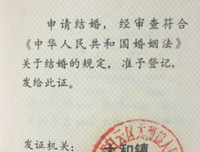 申请结婚，经审查符合
《中华人民共和国婚姻法》
关于结婚的规定，准予登记，
发给此证。
发证机关：
太和镇